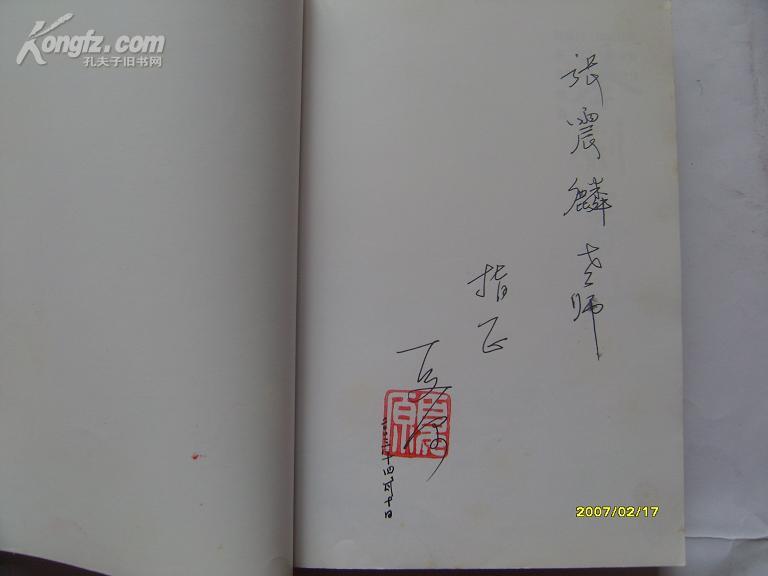 Kongfz.com
孔夫子旧书网
张震麟老师
指正
夏原
2007/02/17